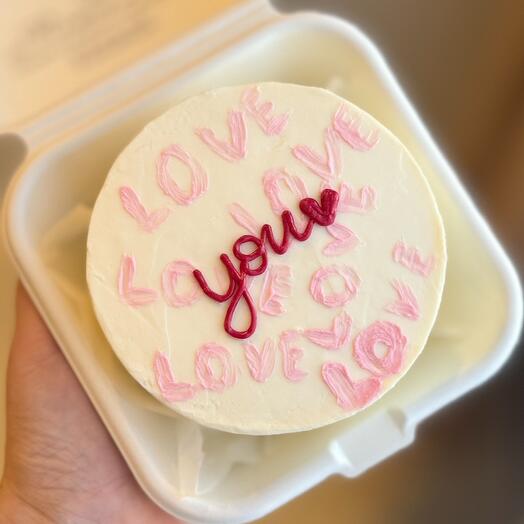 LOVE
LOVE
you
LOVE
LOVE
LOVE
LOVE